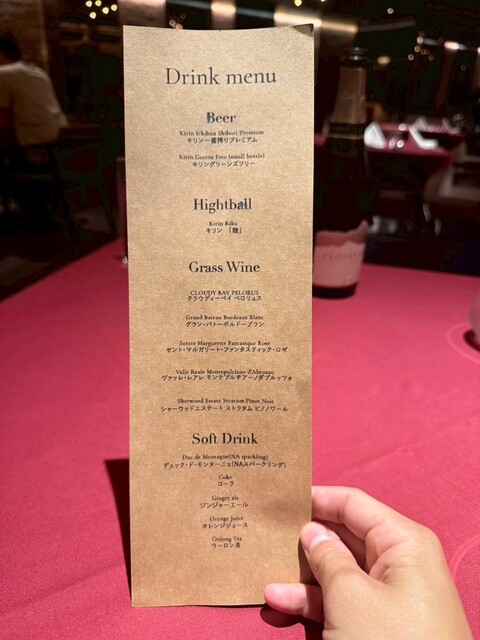 Drink menu
Beer
Kirin Ichiban Shibori Premium
キリン一番搾りプレミアム
Kirin Greens Free (small bottle)
キリングリーンズフリー
Hightball
Kirin Riku
キリン 「陸」
Grass Wine
CLOUDY BAY PELORUS
クラウディーベイ ペロリュス
Grand Bateau Bordeaux Blanc
グラン・バトーボルドーブラン
Sainte Marguerite Fantastique Rose
セント・マルガリート・ファンタスティック・ロゼ
Valle Reale Montepulciano d'Abruzzo
ヴァッレ・レアレ モンテプルチアーノダブルッツォ
Sherwood Estate Stratum Pinot Noir
シャーウッドエステート ストラタム ピノノワール
Soft Drink
Duc de Montagne(NA sparkling)
デュック・ド・モンターニュ(NAスパークリング)
Coke
コーラ
Ginger ale
ジンジャーエール
Orange Juice
オレンジジュース
Oolong Tea
ウーロン茶